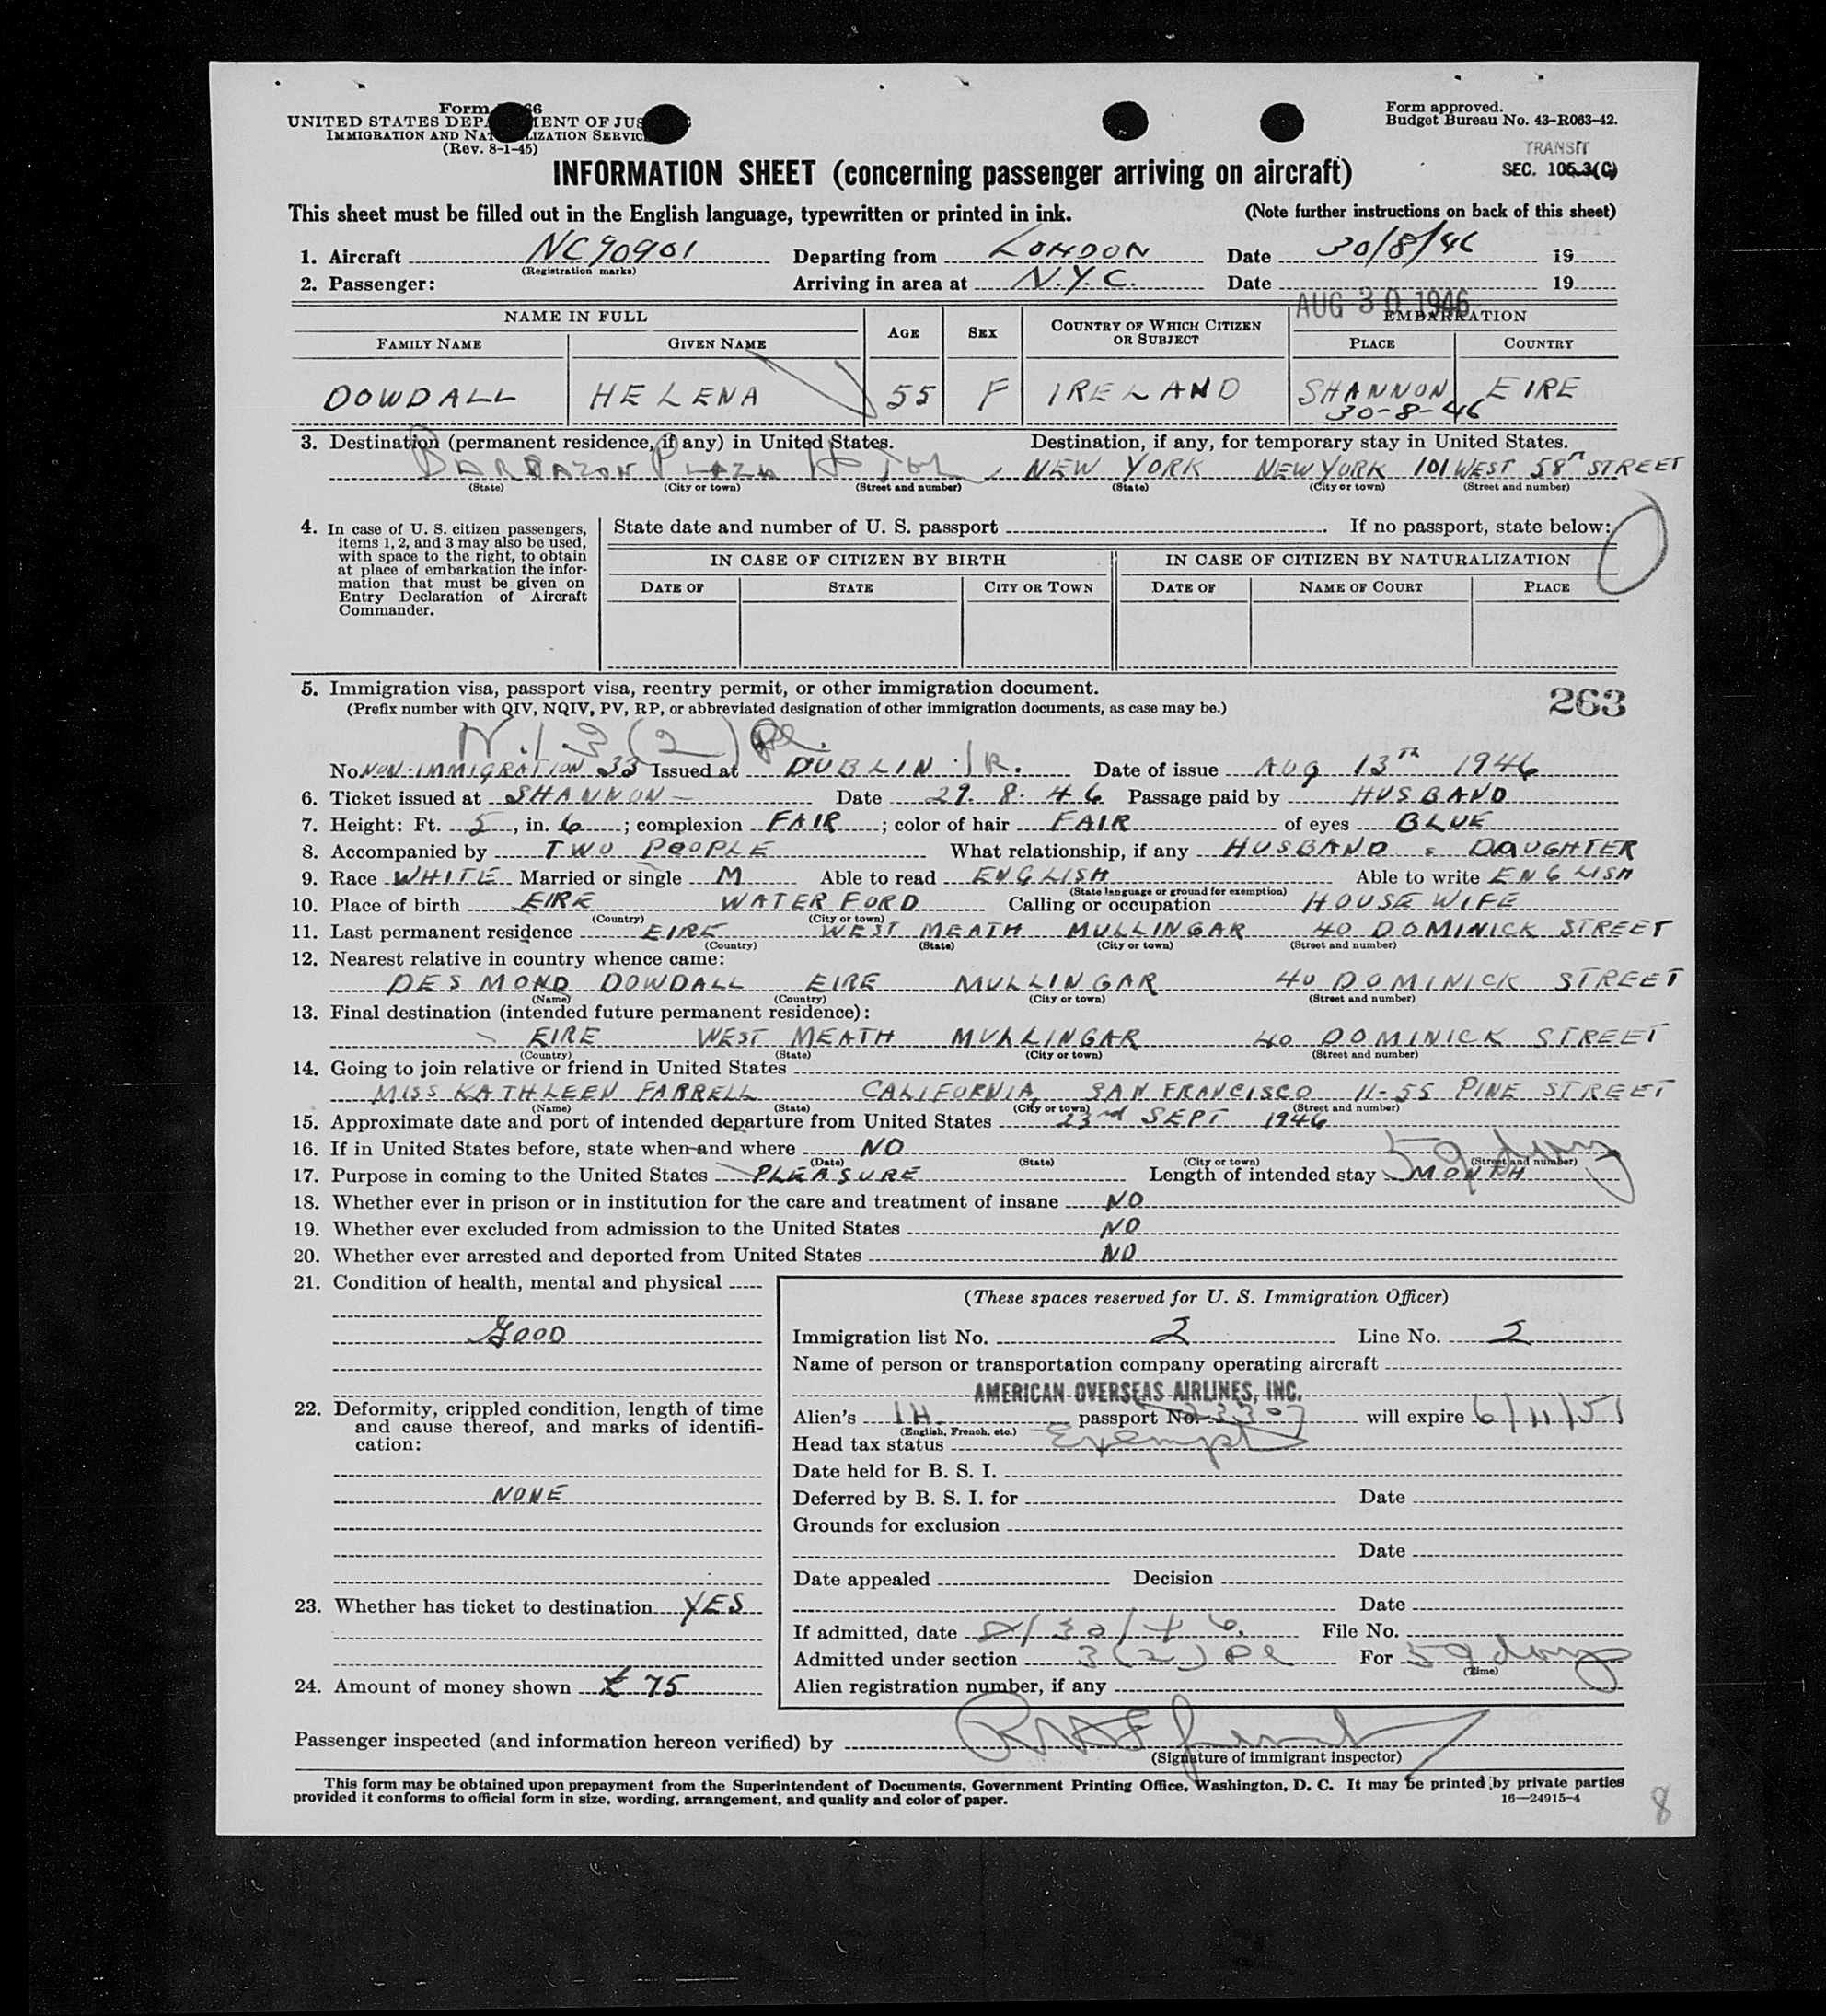 Form 66
UNITED STATES DEPA MENT OF JUS
IMMIGRATION AND NAT LIZATION SERVIC
(Rev. 8-1-45)
Form approved.
Budget Bureau No. 43-R063-42.
TRANSIT
SEC. 105.3(C)
INFORMATION SHEET (concerning passenger arriving on aircraft)
This sheet must be filled out in the English language, typewritten or printed in ink. (Note further instructions on back of this sheet)
1. Aircraft NC90901 Departing from LONDON Date 30/8/46 19
(Registration marks)
2. Passenger: Arriving in area at N.Y.C. Date 19
AUG 30 1946
NAME IN FULL AGE SEX COUNTRY OF WHICH CITIZEN OR SUBJECT EMBARKATION
FAMILY NAME GIVEN NAME PLACE COUNTRY
DOWDALL HELENA 55 F IRELAND SHANNON EIRE
30-8-46
3. Destination (permanent residence, if any) in United States. Destination, if any, for temporary stay in United States.
BARBAZON PLAZA HOTEL, NEW YORK NEW YORK 101 WEST 58TH STREET
(State) (City or town) (Street and number) (State) (City or town) (Street and number)
4. In case of U. S. citizen passengers, items 1, 2, and 3 may also be used, with space to the right, to obtain at place of embarkation the information that must be given on Entry Declaration of Aircraft Commander.
State date and number of U. S. passport . If no passport, state below:
IN CASE OF CITIZEN BY BIRTH IN CASE OF CITIZEN BY NATURALIZATION
DATE OF STATE CITY OR TOWN DATE OF NAME OF COURT PLACE
5. Immigration visa, passport visa, reentry permit, or other immigration document.
(Prefix number with QIV, NQIV, PV, RP, or abbreviated designation of other immigration documents, as case may be.)
263
3(2) Pl.
No. NON-IMMIGRATION 33 Issued at DUBLIN IR. Date of issue AUG 13TH 1946
6. Ticket issued at SHANNON Date 29.8.46 Passage paid by HUSBAND
7. Height: Ft. 5, in. 6; complexion FAIR; color of hair FAIR of eyes BLUE
8. Accompanied by TWO PEOPLE What relationship, if any HUSBAND & DAUGHTER
9. Race WHITE Married or single M Able to read ENGLISH Able to write ENGLISH
(State language or ground for exemption)
10. Place of birth EIRE WATERFORD Calling or occupation HOUSE WIFE
(Country) (City or town)
11. Last permanent residence EIRE WEST MEATH MULLINGAR 40 DOMINICK STREET
(Country) (State) (City or town) (Street and number)
12. Nearest relative in country whence came:
DESMOND DOWDALL EIRE MULLINGAR 40 DOMINICK STREET
(Name) (Country) (City or town) (Street and number)
13. Final destination (intended future permanent residence):
EIRE WEST MEATH MULLINGAR 40 DOMINICK STREET
(Country) (State) (City or town) (Street and number)
14. Going to join relative or friend in United States
MISS KATHLEEN FARRELL CALIFORNIA, SAN FRANCISCO 11-55 PINE STREET
(Name) (State) (City or town) (Street and number)
15. Approximate date and port of intended departure from United States 23rd SEPT 1946
16. If in United States before, state when and where NO
(Date) (State) (City or town) (Street and number)
59 days
17. Purpose in coming to the United States PLEASURE Length of intended stay MONTH
18. Whether ever in prison or in institution for the care and treatment of insane NO
19. Whether ever excluded from admission to the United States NO
20. Whether ever arrested and deported from United States NO
21. Condition of health, mental and physical
GOOD
22. Deformity, crippled condition, length of time and cause thereof, and marks of identification:
NONE
23. Whether has ticket to destination YES
24. Amount of money shown £ 75
(These spaces reserved for U. S. Immigration Officer)
Immigration list No. 2 Line No. 2
Name of person or transportation company operating aircraft
AMERICAN OVERSEAS AIRLINES, INC.
Alien's passport No. 23307 will expire 6/11/51
(English, French, etc.)
Head tax status Exempt
Date held for B. S. I.
Deferred by B. S. I. for Date
Grounds for exclusion
Date
Date appealed Decision
Date
If admitted, date 8/30/46. File No.
Admitted under section 3(2) Pl For 59 days
(Time)
Alien registration number, if any
Passenger inspected (and information hereon verified) by
(Signature of immigrant inspector)
This form may be obtained upon prepayment from the Superintendent of Documents, Government Printing Office, Washington, D. C. It may be printed by private parties
provided it conforms to official form in size, wording, arrangement, and quality and color of paper. 16—24915-4
8